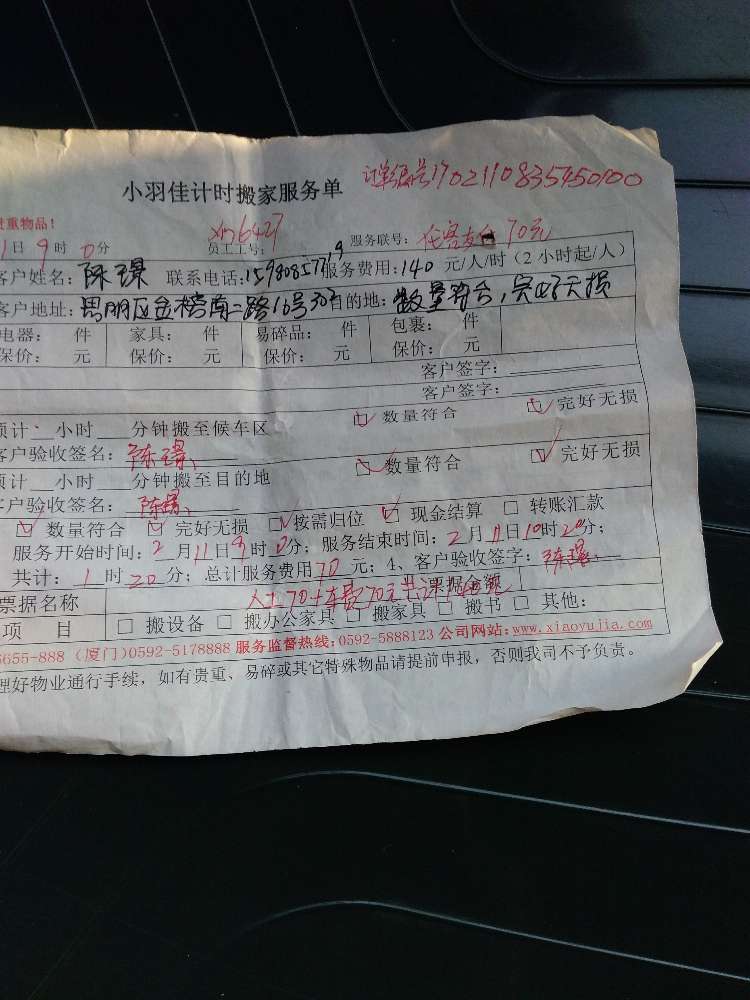 小羽佳计时搬家服务单 订单编号1702110835450100
重物品！
1日9时0分 员工工号：xm6427 服务联号： 70元
客户姓名：陈璟 联系电话： 服务费用：140元/人/时（2小时起/人）
客户地址：思明区金榜南二路16号303 目的地：数量符合，完好无损
电器： 件 家具： 件 易碎品： 件 包裹： 件
保价： 元 保价： 元 保价： 元 保价： 元
客户签字：
客户签字：
预计 小时 分钟搬至候车区 ☑数量符合 ☑完好无损
客户验收签名：陈璟
预计 小时 分钟搬至目的地 ☑数量符合 ☑完好无损
客户验收签名：陈璟
☑数量符合 ☑完好无损 ☑按需归位 ☑现金结算 □转账汇款
服务开始时间：2月11日9时0分；服务结束时间：2月11日10时20分；
共计：1时20分；总计服务费用70元；4、客户验收签字：陈璟
票据名称 票据金额
人工70+车费70元共计140元
项 目 □搬设备 □搬办公家具 □搬家具 □搬书 □其他：
6655-888（厦门）0592-5178888 服务监督热线：0592-5888123 公司网站：www.xiaoyujia.com
理好物业通行手续，如有贵重、易碎或其它特殊物品请提前申报，否则我司不予负责。